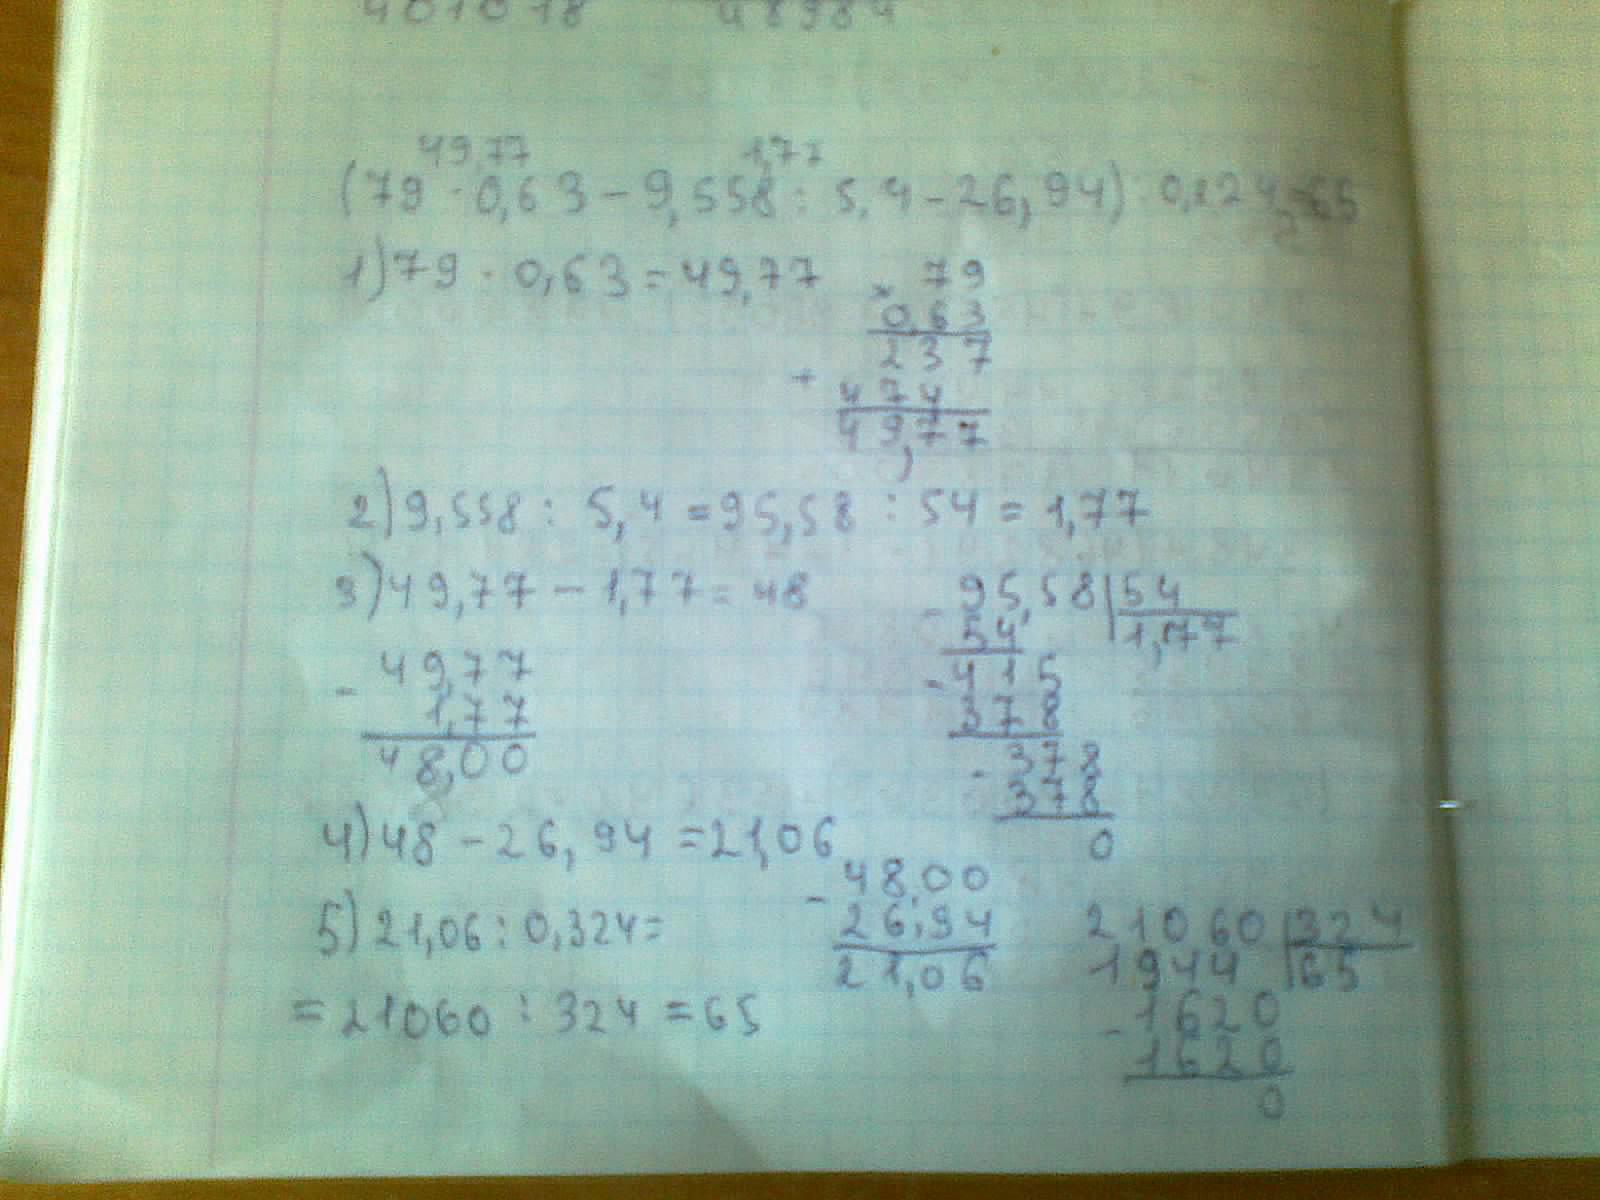 49,77 1,77
(79 · 0,63 - 9,558 : 5,4 - 26,94) : 0,324 = 65
1) 79 · 0,63 = 49,77
× 79
0,63
237
+ 474
49,77
2) 9,558 : 5,4 = 95,58 : 54 = 1,77
3) 49,77 - 1,77 = 48
- 95,58 | 54
54 | 1,77
- 415
378
- 378
378
0
- 49,77
1,77
48,00
4) 48 - 26,94 = 21,06
- 48,00
26,94
21,06
5) 21,06 : 0,324 =
= 21060 : 324 = 65
21060 | 324
1944 | 65
- 1620
1620
0